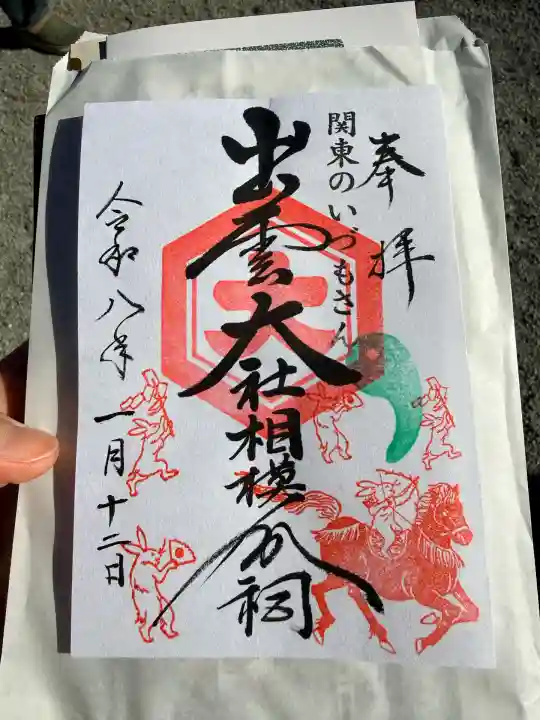 奉拝
関東のいづもさん
出雲大社相模分祠
令和八年一月十二日
大